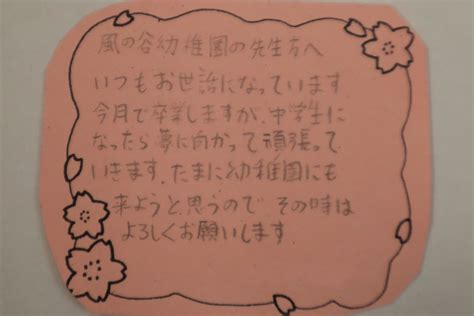 風の谷幼稚園の先生方へ
いつもお世話になっています。
今月で卒業しますが、中学生に
なったら夢に向かって頑張って
いきます。たまに幼稚園にも
来ようと思うので その時は
よろしくお願いします